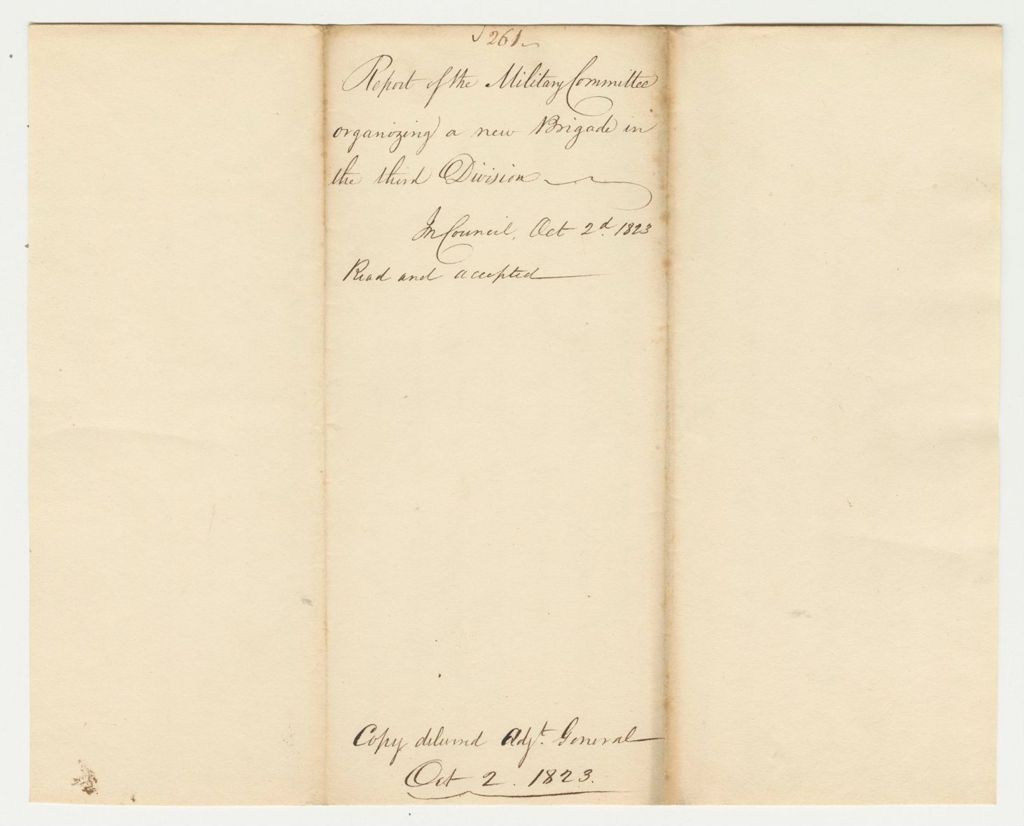 261
Report of the Military Committee
organizing a new Brigade in
the third Division
In Council, Oct 2d. 1823
Read and accepted
Copy deliverd Adjt. General
Oct 2. 1823.